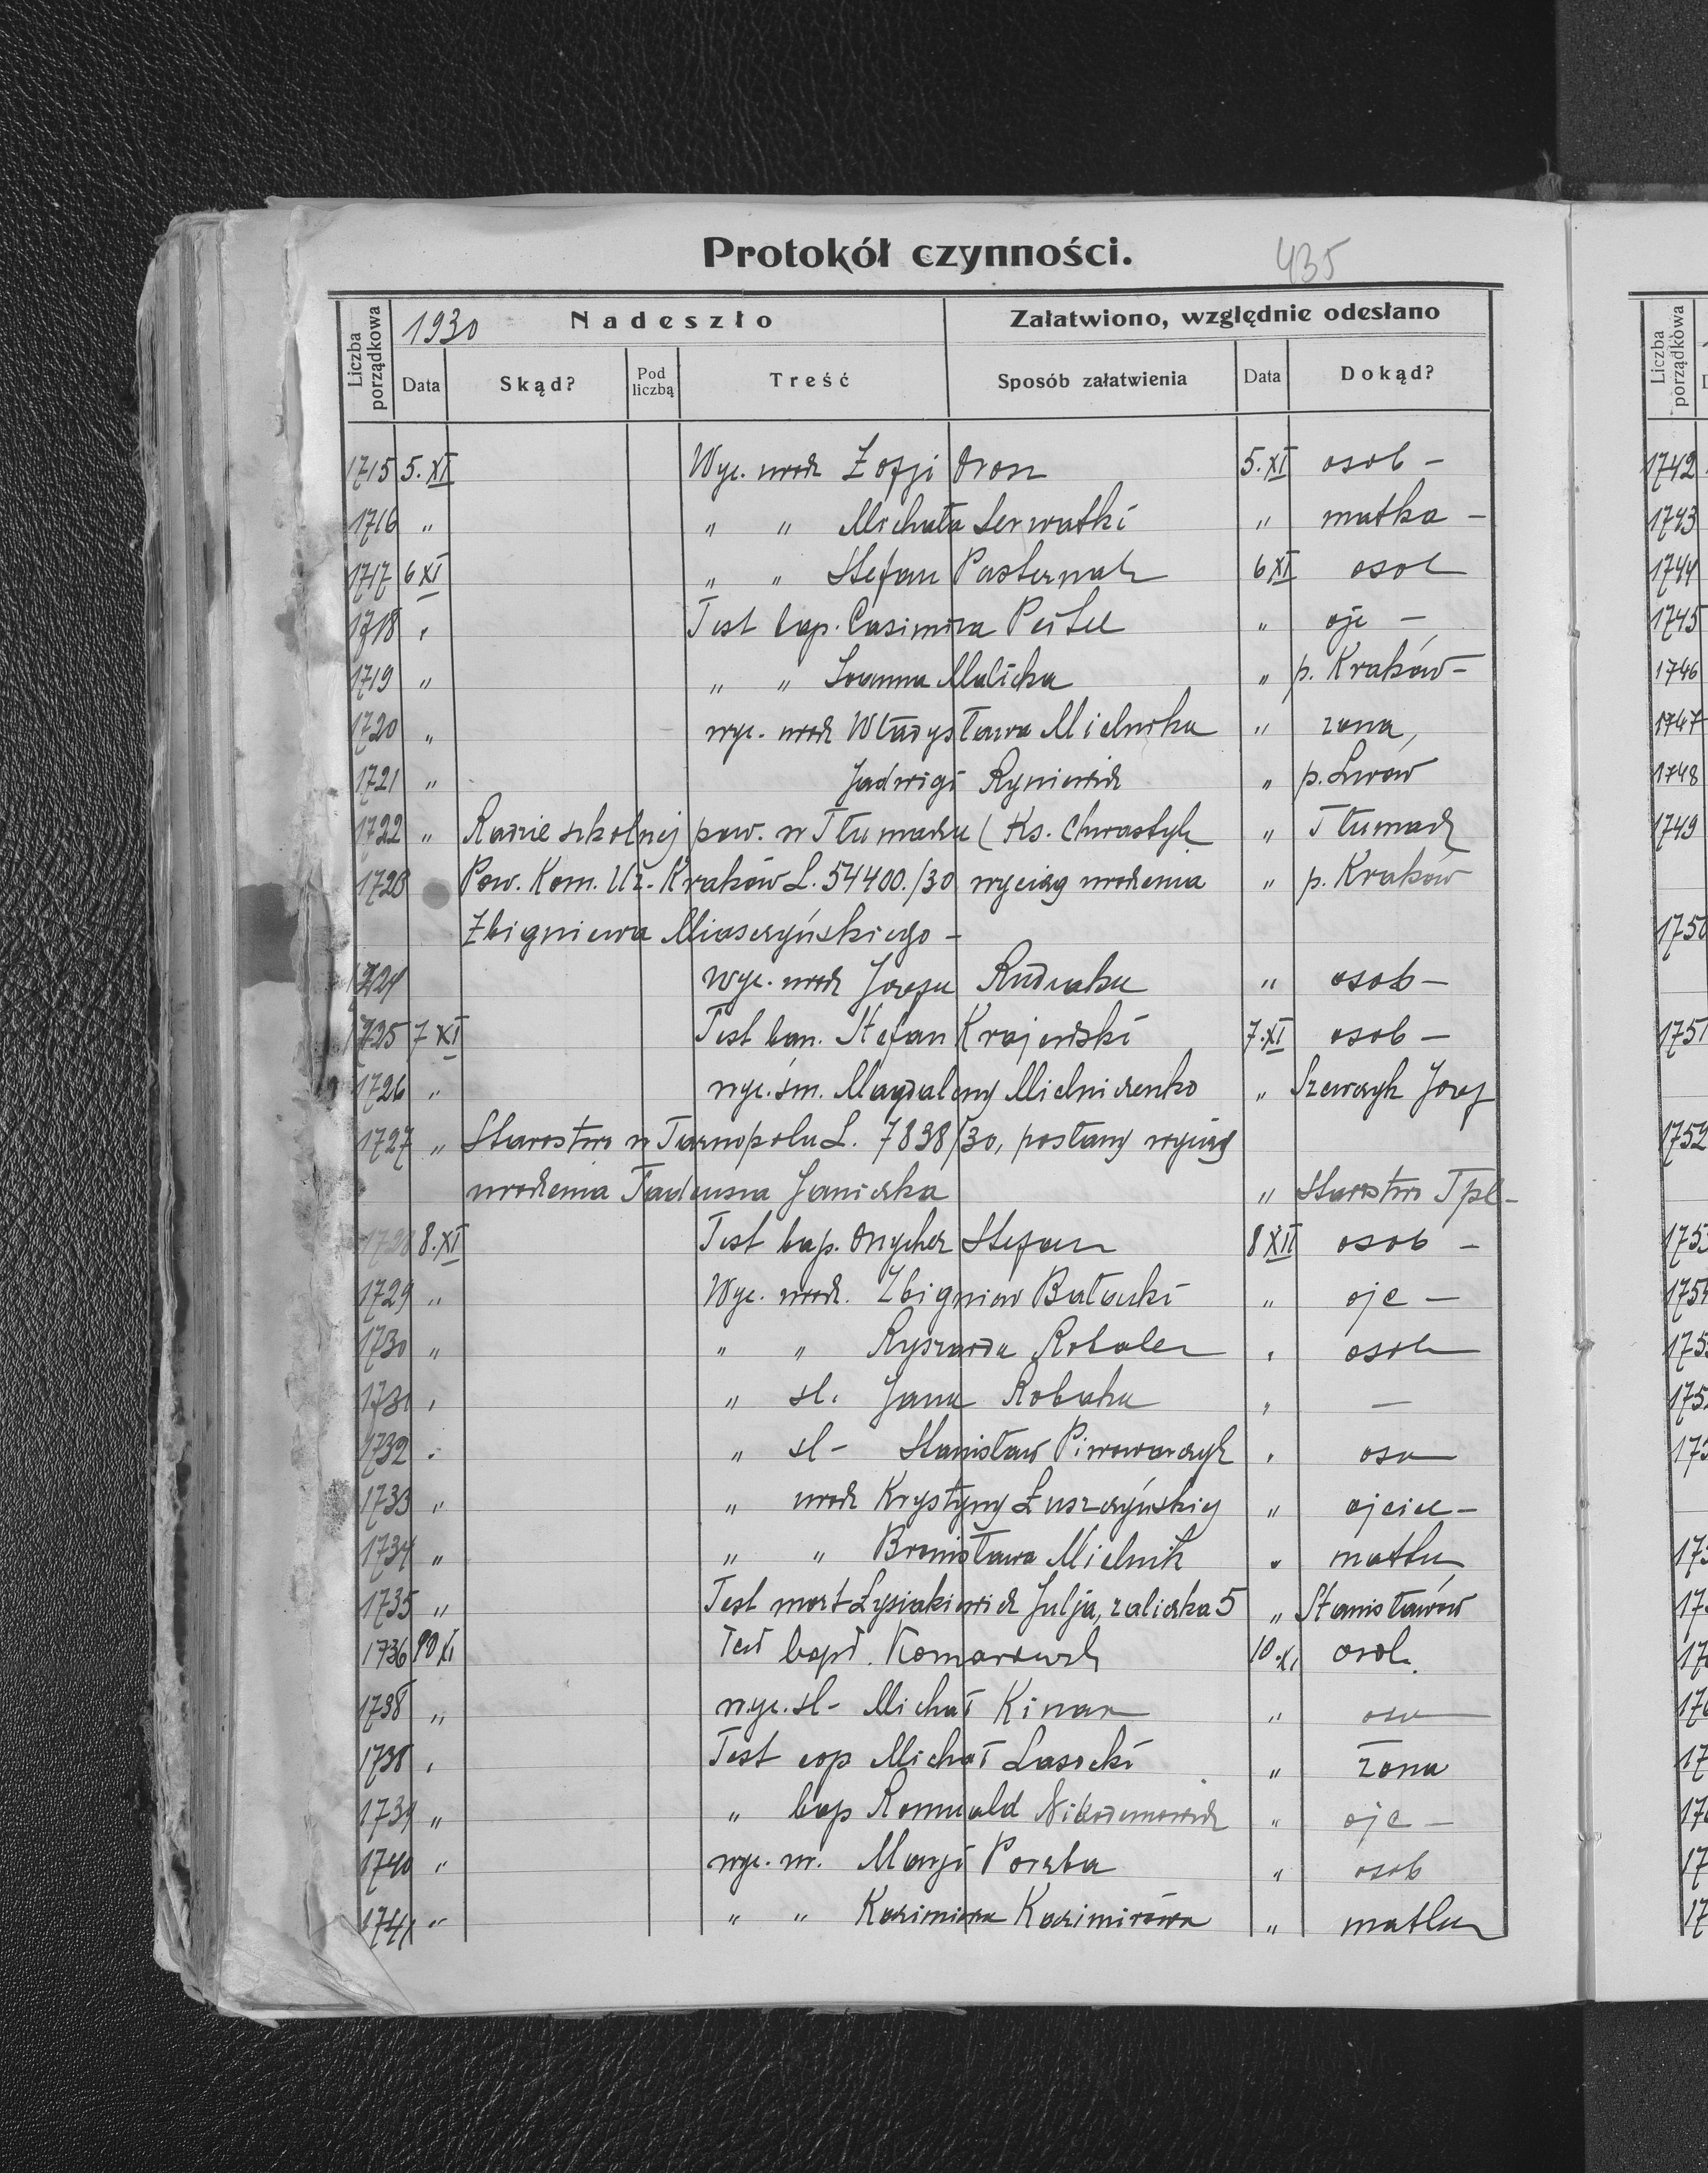 Protokół czynności.
435
Liczba porządkowa
1930 Nadeszło
Załatwiono, względnie odesłano
Data Skąd? Pod liczbą Treść Sposób załatwienia Data Dokąd?
1715 5.XI Wyc. urodz Zofji Dron 5.XI osob -
1716 " " " Michała Serwatki " matka -
1717 6 XI " " Stefan Pasternak 6 XI osob
1718 " Test bap. Casimira " ojc -
1719 " " " Joanna Malicka " p. Kraków -
1720 " wyc. urodz Władysława Mielnika " zona,
1721 " Jadwigi Ryniewicz " p. Lwow
1722 " Radzie szkolnej pow. w Tłumaczu ( Ks. Chwastyk " Tłumacz
1723 Pow. Kom. Uz. Kraków L. 54400./30 wyciąg urodzenia " p. Kraków
Zbigniewa Miaszyńskiego -
1724 wyc. urodz Jozefa Rudnaka " osob -
1725 7 XI Test ban. Stefan Krajewski 7.XI osob -
1726 " wyc. śm. Magdaleny Mielniczenko " Szewczyk Jozef
1727 " Starostwo w Tarnopolu L. 7838/30, posłany wyciąg
urodzenia Tadeusza Janiczka " Starostwo Tpl -
1728 8.XI Test bap. Stefan 8 XII osob -
1729 " Wyc. urodz. Zbigniew Bałucki " ojc -
1730 " " " Ryszarda " osob
1731 " " sl. Jana Robaka " -
1732 " " sl - Stanisław Piwowarczyk " oso
1733 " " urodz Krystyny Łuszczyńskiej " ojciec -
1734 " " " Bronisława Mielnik " matka
1735 " Test mort Łysiakiewicz Julja, zaliczka 5 " Stanisławów
1736 10 XI Test bapt. 10.XI osob.
1738 " wyc. sl - Michał " oso
1738 " Test cop Michał Lasocki " żona
1739 " " bap Romuald Nikodemowicz " ojc -
1740 " wyc. ur. Marji Poręba " osob
1741 " " " Kazimiera Kazimirówa " matka
Liczba porządkowa
1742
1743
1744
1745
1746
1747
1748
1749
1750
1751
1752